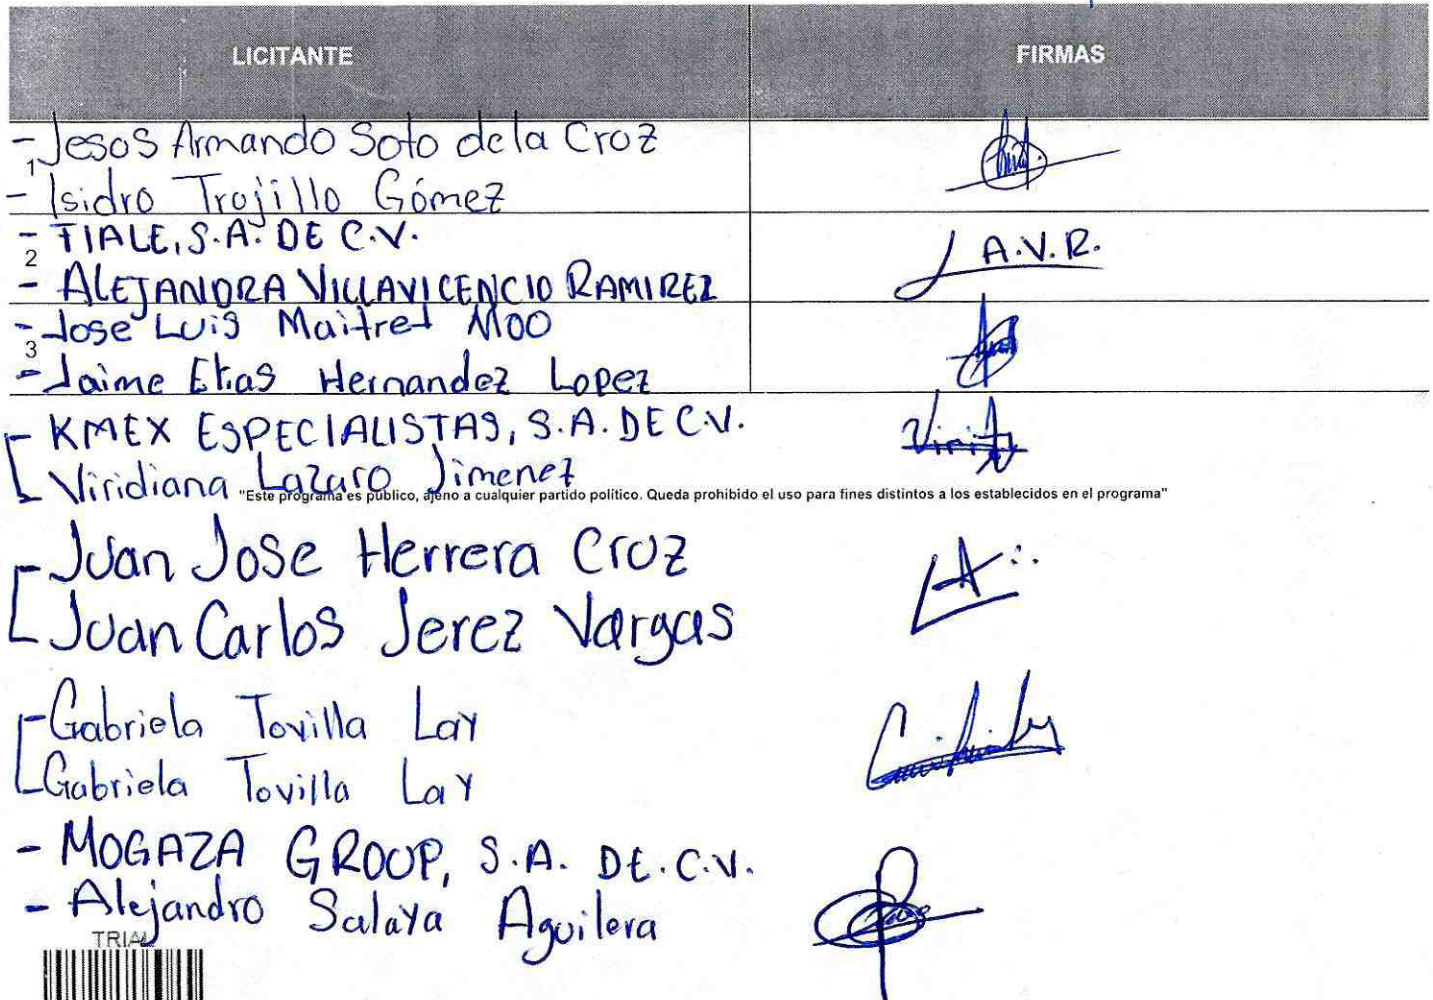 LICITANTE FIRMAS
- Jesos Armando Soto de la Croz
1
- Isidro Trojillo Gómez
- TIALE, S.A. DE C.V.
2 A.V.R.
- ALEJANDRA VILLAVICENCIO RAMIREZ
- Jose Luis Maitret MOO
3
- Jaime Elias Hernandez Lopez
- KMEX ESPECIALISTAS, S.A. DE C.V.
Viridiana Lazaro Jimenez
"Este programa es público, ajeno a cualquier partido político. Queda prohibido el uso para fines distintos a los establecidos en el programa"
- Juan Jose Herrera Croz
Juan Carlos Jerez Vargas
- Gabriela Tovilla Lay
- Gabriela Tovilla Lay
- MOGAZA GROUP, S.A. DE.C.V.
- Alejandro Salaya Aguilera
TRIAL